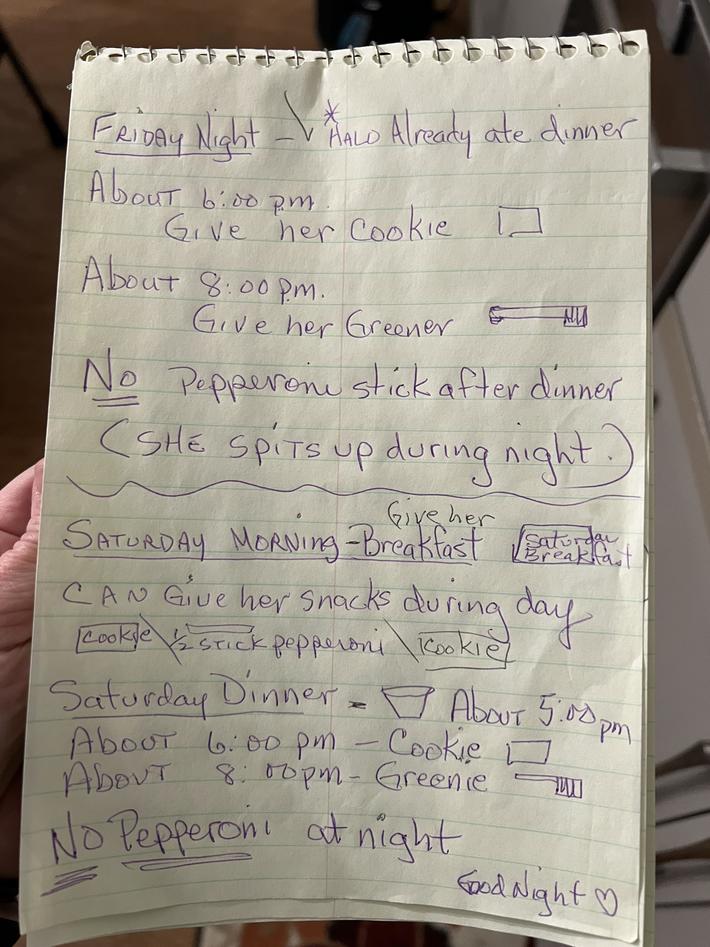 Friday Night - * Halo Already ate dinner
About 6:00 pm.
Give her Cookie
About 8:00 P.M.
Give her Greener
No Pepperoni stick after dinner
(SHE SPITS up during night.)
Give her
SATURDAY MORNING - Breakfast Saturday Breakfast
CAN Give her snacks during day
Cookie \ 1/2 STICK pepperoni \ Cookie
Saturday Dinner - About 5:00 pm
About 6:00 pm - Cookie
About 8:00pm - Greenie
No Pepperoni at night
Good Night ♡